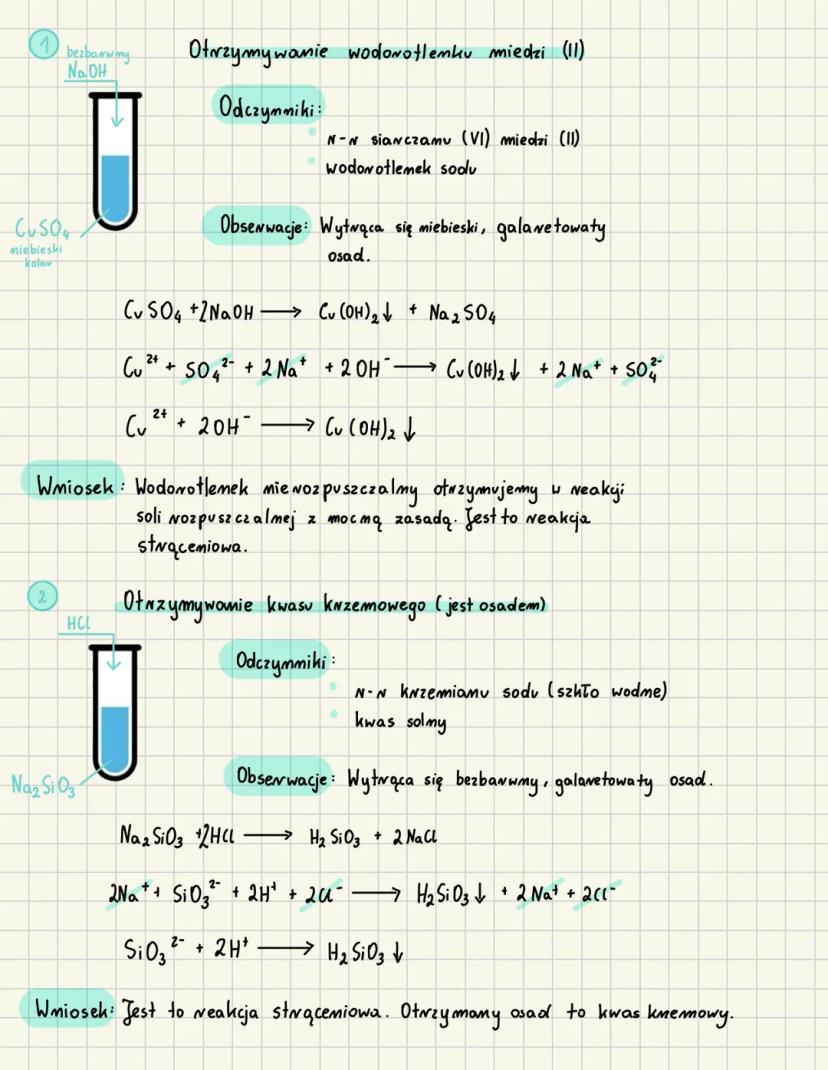 1
bezbarwny
NaOH
Otrzymywanie wodorotlenku miedzi (II)
Odczynniki:
r-r siarczanu (VI) miedzi (II)
wodorotlenek sodu
CuSO₄
niebieski
kolor
Obserwacje: Wytrąca się niebieski, galaretowaty
osad.
CuSO₄ + 2NaOH ⟶ Cu(OH)₂↓ + Na₂SO₄
Cu²⁺ + SO₄²⁻ + 2Na⁺ + 2OH⁻ ⟶ Cu(OH)₂↓ + 2Na⁺ + SO₄²⁻
Cu²⁺ + 2OH⁻ ⟶ Cu(OH)₂↓
Wniosek: Wodorotlenek nierozpuszczalny otrzymujemy w reakcji
soli rozpuszczalnej z mocną zasadą. Jest to reakcja
strąceniowa.
2
HCl
Otrzymywanie kwasu krzemowego (jest osadem)
Odczynniki:
r-r krzemianu sodu (szkło wodne)
kwas solny
Na₂SiO₃
Obserwacje: Wytrąca się bezbarwny, galaretowaty osad.
Na₂SiO₃ + 2HCl ⟶ H₂SiO₃ + 2NaCl
2Na⁺ + SiO₃²⁻ + 2H⁺ + 2Cl⁻ ⟶ H₂SiO₃↓ + 2Na⁺ + 2Cl⁻
SiO₃²⁻ + 2H⁺ ⟶ H₂SiO₃↓
Wniosek: Jest to reakcja strąceniowa. Otrzymany osad to kwas krzemowy.